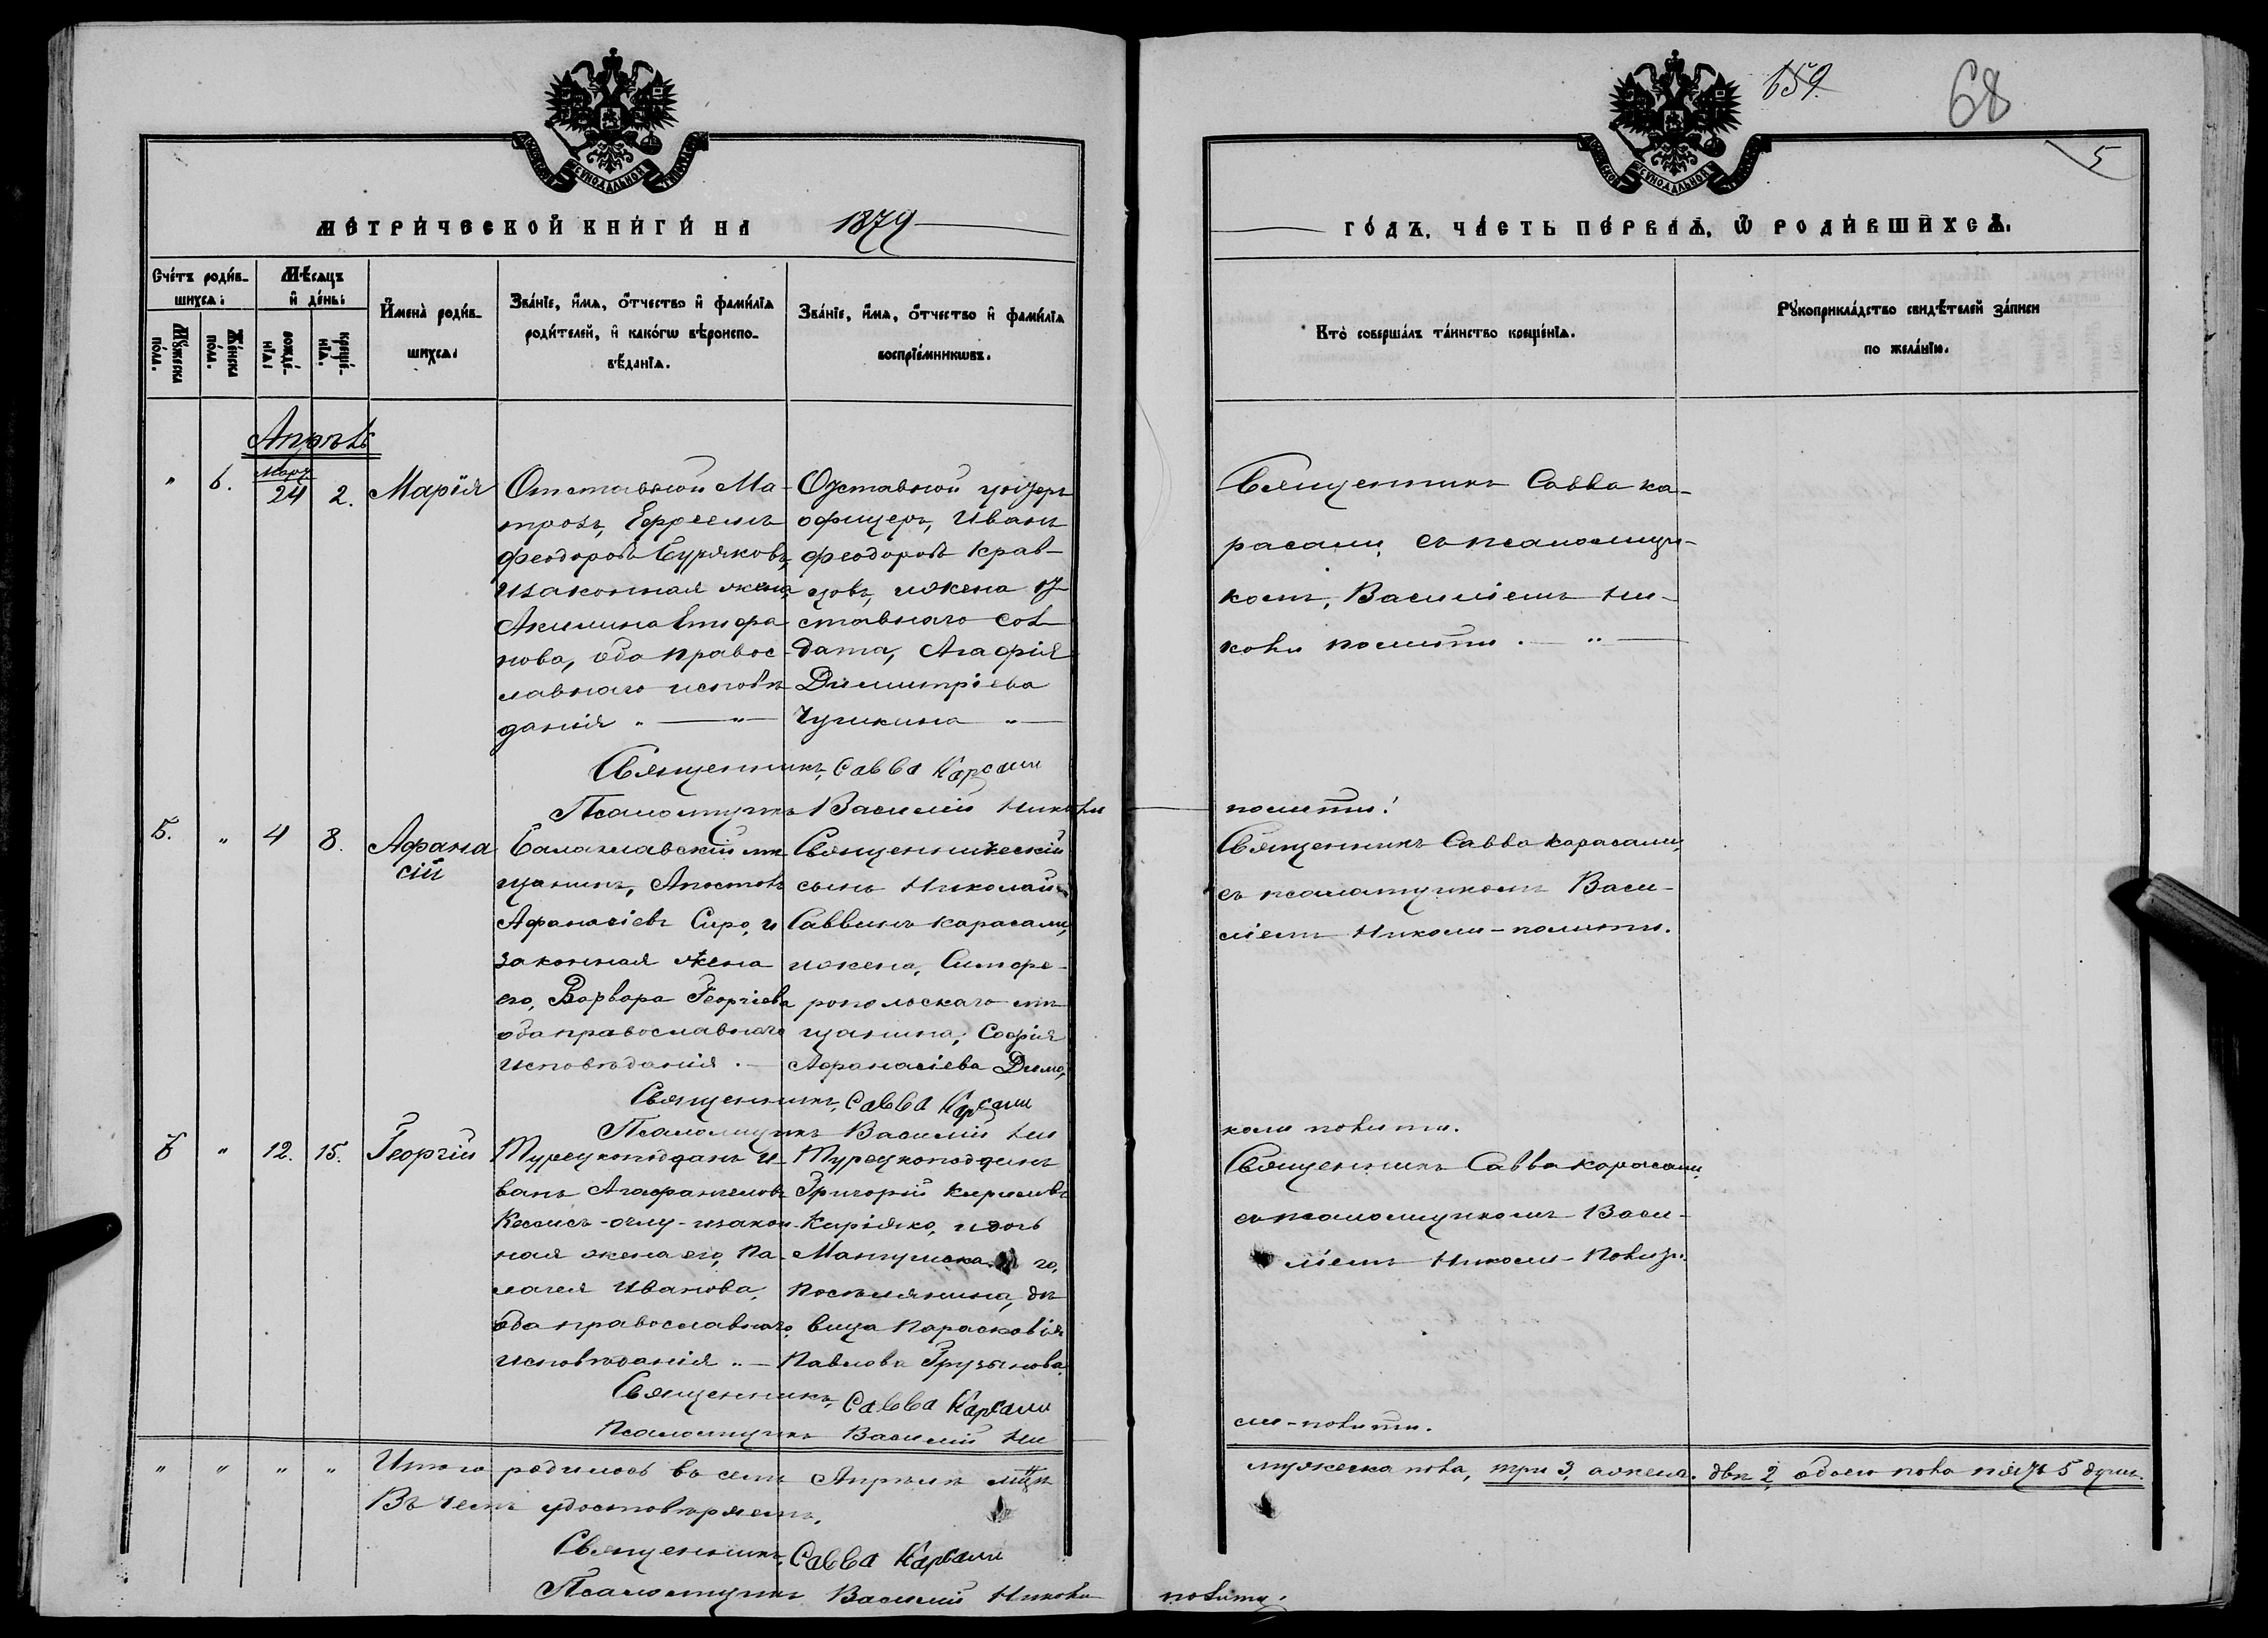 159.
68
5
МЕТРИЧЕСКОЙ КНИГИ НА 1879
ГОДЪ. ЧАСТЬ ПЕРВАЯ, Ѡ РОДИВШИХСЯ.
Счетъ родив-
шихся:
Мѣсяцъ
и день:
Мужеска
пола.
Женска
пола.
рожде-
нія:
креще-
нія.
Имена родив-
шихся:
Званіе, имя, отчество и фамилія
родителей, и какогѡ вѣроиспо-
вѣданія.
Званіе, имя, отчество и фамилія
воспріемникѡвъ.
Кто совершалъ таинство крещенія.
Рукоприкладство свидѣтелей записи
по желанію.
Апрѣль
Март
" 6. 24 2. Марія
Отставной Ма-
тросъ, Ефремъ
Феодоровъ Буряковъ,
и законная жена
Акилина
нова, оба правос-
лавнаго исповѣ
данія " — "
Отставной унтеръ
офицеръ, Иванъ
Феодоровъ Крав-
цовъ, и жена от
ставнаго сол
дата, Агафія
Димитріева
Чушкина "
Священникъ Савва ка-
расали, съ псаломщи-
комъ, Василіемъ Ни-
коли полити. — " —
Священникъ, Савва Карасали
Псаломщикъ Василій Николи
полити.
5. " 4 8. Афана
сій
Балаклавскій мѣ
щанинъ, Апостолъ
Афанасіевъ Сиро, и
законная жена
его, Варвара Георгіева
оба православнаго
исповѣданія. —
Священническій
сынъ Николай
Саввинъ Карасали,
и жена, Симфе-
ропольскаго мѣ
щанина, Софія
Афанасіева Димо,
Священникъ Савва Карасали,
съ псаломщикомъ Васи-
ліемъ Николи-полити.
Священникъ, Савва Карасали
Псаломщикъ Василій Ни
коли полити.
6 " 12. 15. Георгій
Турецкоподданъ И-
ванъ Агафангеловъ
Кесись-оглу-и закон
ная жена его, Па-
лагея Иванова,
оба православнаго
исповѣданія. " —
Турецкоподданъ
Григорій Кириловъ
Киріяко, и дочь
Мангушска го,
поселянина, дѣ
вица Парасковія
Павлова Грузинова.
Священникъ Савва Карасали,
съ псаломщикомъ Васи-
ліемъ Николи-Полити.
Священникъ, Савва Карасали
Псаломщикъ Василій Ни
коли-полити.
" " " " Итого родилось въ семъ Апрѣлѣ мцѣ мужеска пола, три 3, а женск. двѣ 2, обоего пола пять 5 душъ.
Въ чемъ удостовѣряемъ.
Священникъ, Савва Карасали
Псаломщикъ Василій Николи полити.